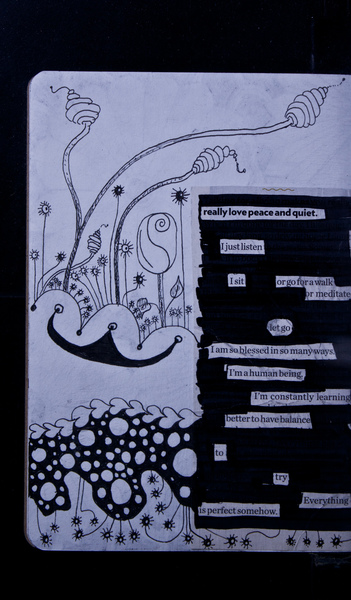 really love peace and quiet.
I just listen
I sit or go for a walk
or meditate
let go
I am so blessed in so many ways.
I'm a human being,
I'm constantly learning
better to have balance
to
try
Everything
is perfect somehow.